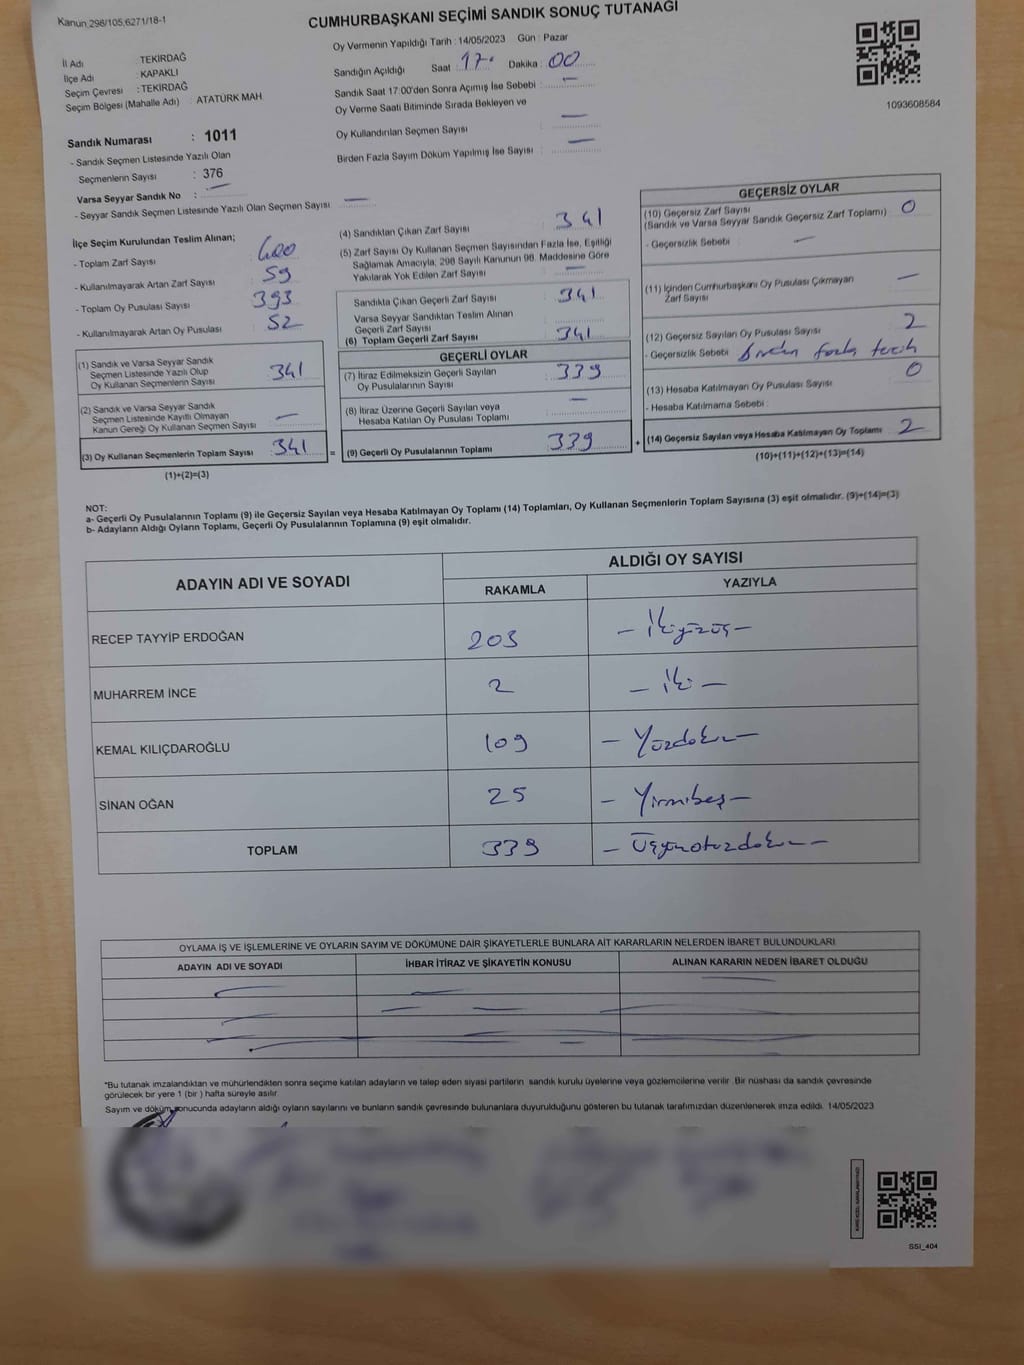 Kanun,298/105,6271/18-1
CUMHURBAŞKANI SEÇİMİ SANDIK SONUÇ TUTANAĞI
İl Adı : TEKİRDAĞ
İlçe Adı : KAPAKLI
Seçim Çevresi : TEKİRDAĞ
Seçim Bölgesi (Mahalle Adı) : ATATÜRK MAH
Sandık Numarası : 1011
- Sandık Seçmen Listesinde Yazılı Olan
Seçmenlerin Sayısı : 376
Varsa Seyyar Sandık No : —
- Seyyar Sandık Seçmen Listesinde Yazılı Olan Seçmen Sayısı —
Oy Vermenin Yapıldığı Tarih : 14/05/2023 Gün : Pazar
Sandığın Açıldığı Saat : 17 Dakika : 00
Sandık Saat 17:00'den Sonra Açımış İse Sebebi : —
Oy Verme Saati Bitiminde Sırada Bekleyen ve
Oy Kullandırılan Seçmen Sayısı : —
Birden Fazla Sayım Döküm Yapılmış İse Sayısı : —
1093608584
İlçe Seçim Kurulundan Teslim Alınan;
- Toplam Zarf Sayısı 400
- Kullanılmayarak Artan Zarf Sayısı 59
- Toplam Oy Pusulası Sayısı 393
- Kullanılmayarak Artan Oy Pusulası 52
(1) Sandık ve Varsa Seyyar Sandık
Seçmen Listesinde Yazılı Olup
Oy Kullanan Seçmenlerin Sayısı 341
(2) Sandık ve Varsa Seyyar Sandık
Seçmen Listesinde Kayıtlı Olmayan
Kanun Gereği Oy Kullanan Seçmen Sayısı —
(3) Oy Kullanan Seçmenlerin Toplam Sayısı 341 =
(1)+(2)=(3)
(4) Sandıktan Çıkan Zarf Sayısı 341
(5) Zarf Sayısı Oy Kullanan Seçmen Sayısından Fazla İse, Eşitliği
Sağlamak Amacıyla, 298 Sayılı Kanunun 98. Maddesine Göre
Yakılarak Yok Edilen Zarf Sayısı —
Sandıkta Çıkan Geçerli Zarf Sayısı 341
Varsa Seyyar Sandıktan Teslim Alınan
Geçerli Zarf Sayısı
(6) Toplam Geçerli Zarf Sayısı 341
GEÇERLİ OYLAR
(7) İtiraz Edilmeksizin Geçerli Sayılan
Oy Pusulalarının Sayısı 339
(8) İtiraz Üzerine Geçerli Sayılan veya
Hesaba Katılan Oy Pusulası Toplamı —
(9) Geçerli Oy Pusulalarının Toplamı 339 +
GEÇERSİZ OYLAR
(10) Geçersiz Zarf Sayısı
(Sandık ve Varsa Seyyar Sandık Geçersiz Zarf Toplamı) 0
- Geçersizlik Sebebi : —
(11) İçinden Cumhurbaşkanı Oy Pusulası Çıkmayan
Zarf Sayısı —
(12) Geçersiz Sayılan Oy Pusulası Sayısı 2
- Geçersizlik Sebebi birden fazla tercih
(13) Hesaba Katılmayan Oy Pusulası Sayısı 0
- Hesaba Katılmama Sebebi :
(14) Geçersiz Sayılan veya Hesaba Katılmayan Oy Toplamı 2
(10)+(11)+(12)+(13)=(14)
NOT:
a- Geçerli Oy Pusulalarının Toplamı (9) ile Geçersiz Sayılan veya Hesaba Katılmayan Oy Toplamı (14) Toplamları, Oy Kullanan Seçmenlerin Toplam Sayısına (3) eşit olmalıdır. (9)+(14)=(3)
b- Adayların Aldığı Oyların Toplamı, Geçerli Oy Pusulalarının Toplamına (9) eşit olmalıdır.
ADAYIN ADI VE SOYADI ALDIĞI OY SAYISI
RAKAMLA YAZIYLA
RECEP TAYYİP ERDOĞAN 203 — İkiyüzüç —
MUHARREM İNCE 2 — İki —
KEMAL KILIÇDAROĞLU 109 — Yüzdokuz —
SİNAN OĞAN 25 — Yirmibeş —
TOPLAM 339 — Üçyüzotuzdokuz —
OYLAMA İŞ VE İŞLEMLERİNE VE OYLARIN SAYIM VE DÖKÜMÜNE DAİR ŞİKAYETLERLE BUNLARA AİT KARARLARIN NELERDEN İBARET BULUNDUKLARI
ADAYIN ADI VE SOYADI İHBAR İTİRAZ VE ŞİKAYETİN KONUSU ALINAN KARARIN NEDEN İBARET OLDUĞU
*Bu tutanak imzalandıktan ve mühürlendikten sonra seçime katılan adayların ve talep eden siyasi partilerin sandık kurulu üyelerine veya gözlemcilerine verilir .Bir nüshası da sandık çevresinde
görülecek bir yere 1 (bir ) hafta süreyle asılır.
Sayım ve döküm sonucunda adayların aldığı oyların sayılarını ve bunların sandık çevresinde bulunanlara duyurulduğunu gösteren bu tutanak tarafımızdan düzenlenerek imza edildi. 14/05/2023
SSI_404